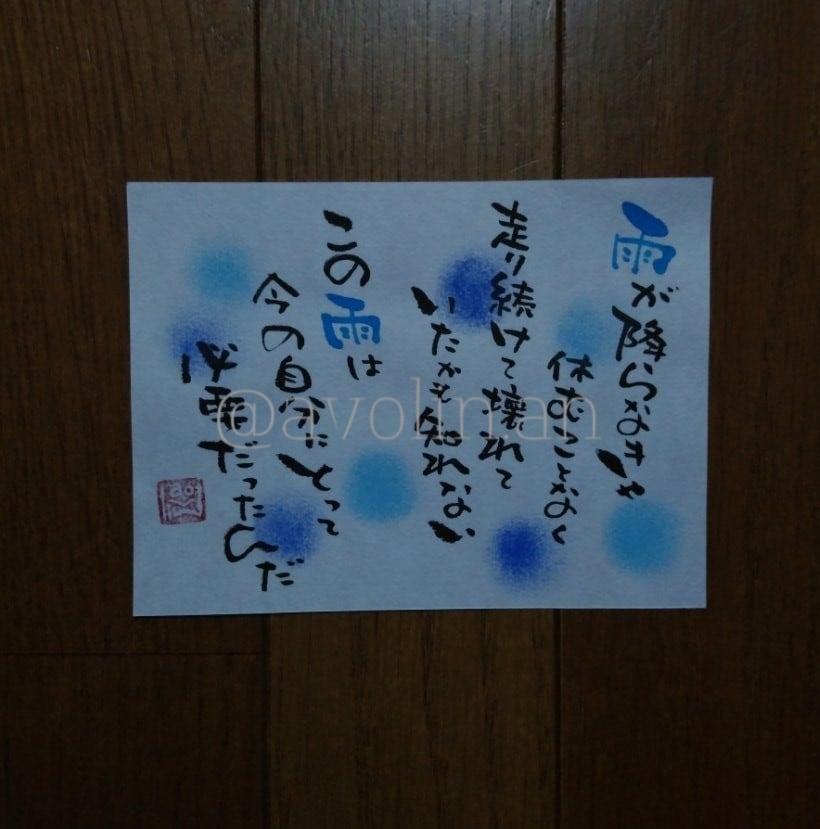 雨が降らなければ
休むことなく
走り続けて壊れて
いたかも知れない
この雨は
今の自分にとって
必要だったんだ
@avolin.an